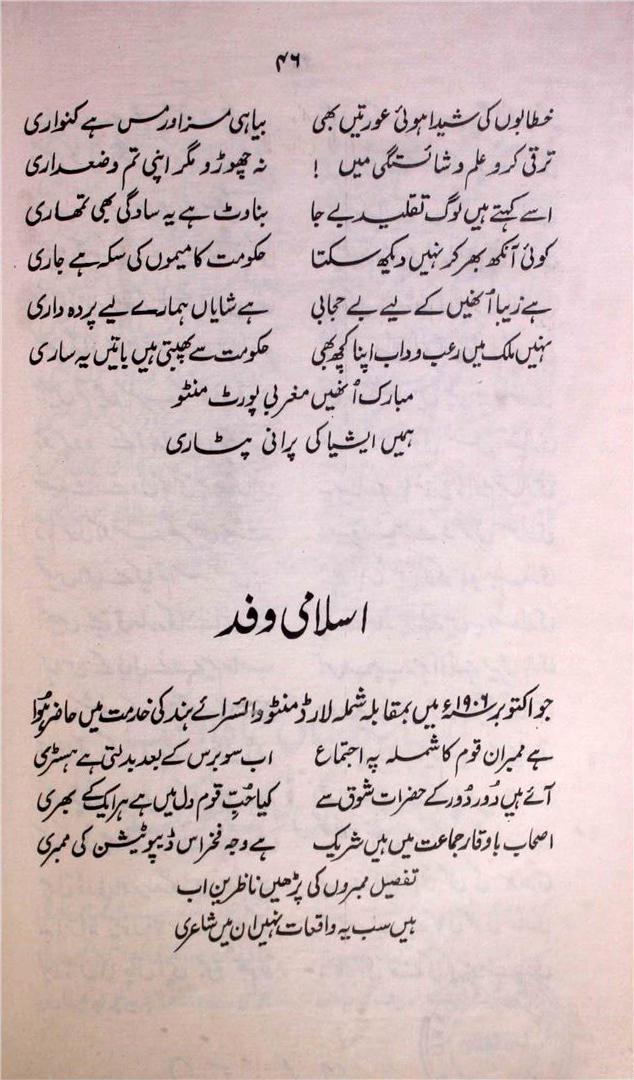 ۴۶
خطابوں کی شیدا ہوئی عورتیں بھی بیاہی مسز اور مس ہے کنواری
ترقی کرو علم و شائستگی میں ! نہ چھوڑو مگر اپنی تم وضعداری
اسے کہتے ہیں لوگ تقلید بے جا بناوٹ ہے یہ سادگی بھی تمھاری
کوئی آنکھ بھر کر نہیں دیکھ سکتا حکومت کا میموں کی سکہ ہے جاری
ہے زیبا اُنھیں کے لیے بے حجابی ہے شایاں ہمارے لیے پردہ داری
نہیں ملک میں رعب و داب اپنا کچھ بھی حکومت سے پھبتی ہیں باتیں یہ ساری
مبارک اُنھیں مغربی پورٹ منٹو
ہمیں ایشیا کی پرانی پٹاری
اسلامی وفد
جو اکتوبر ۱۹۰۶ء میں بمقابلہ شملہ لارڈ منٹو وائسرائے ہند کی خدمت میں حاضر ہُوا
ہے ممبران قوم کا شملہ پہ اجتماع اب سو برس کے بعد بدلتی ہے ہسٹری
آئے ہیں دُور دُور کے حضرات شوق سے کیا حُبِّ قوم دل میں ہے ہر ایک کے بھری
اصحاب باوقار جماعت میں ہیں شریک ہے وجہ فخر اس ڈیپوٹیشن کی ممبری
تفصیل ممبروں کی پڑھیں ناظرین اب
ہیں سب یہ واقعات نہیں ان میں شاعری